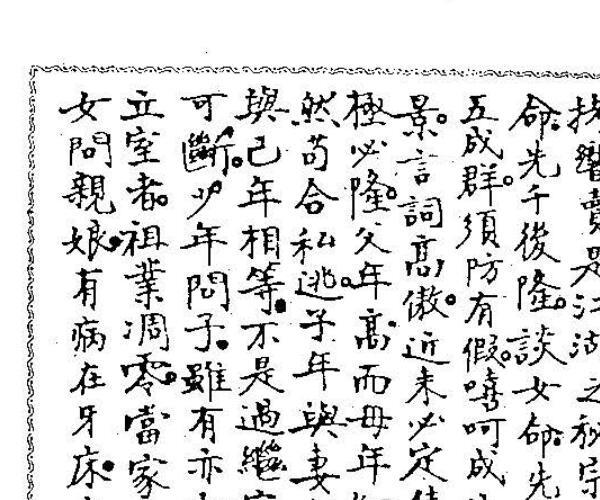 響賣是江湖之秘宗
命。先千後隆。談女命。先
五成群。須防有假。嘻呵成
景。言詞高傲。近来必定
極必隆。父年高而母年
然苟合私逃。子年與妻
與己年相等。不是過繼
可斷。少年問子。雖有亦
立室者。祖業凋零。當家
女問親娘。有病在牙床。